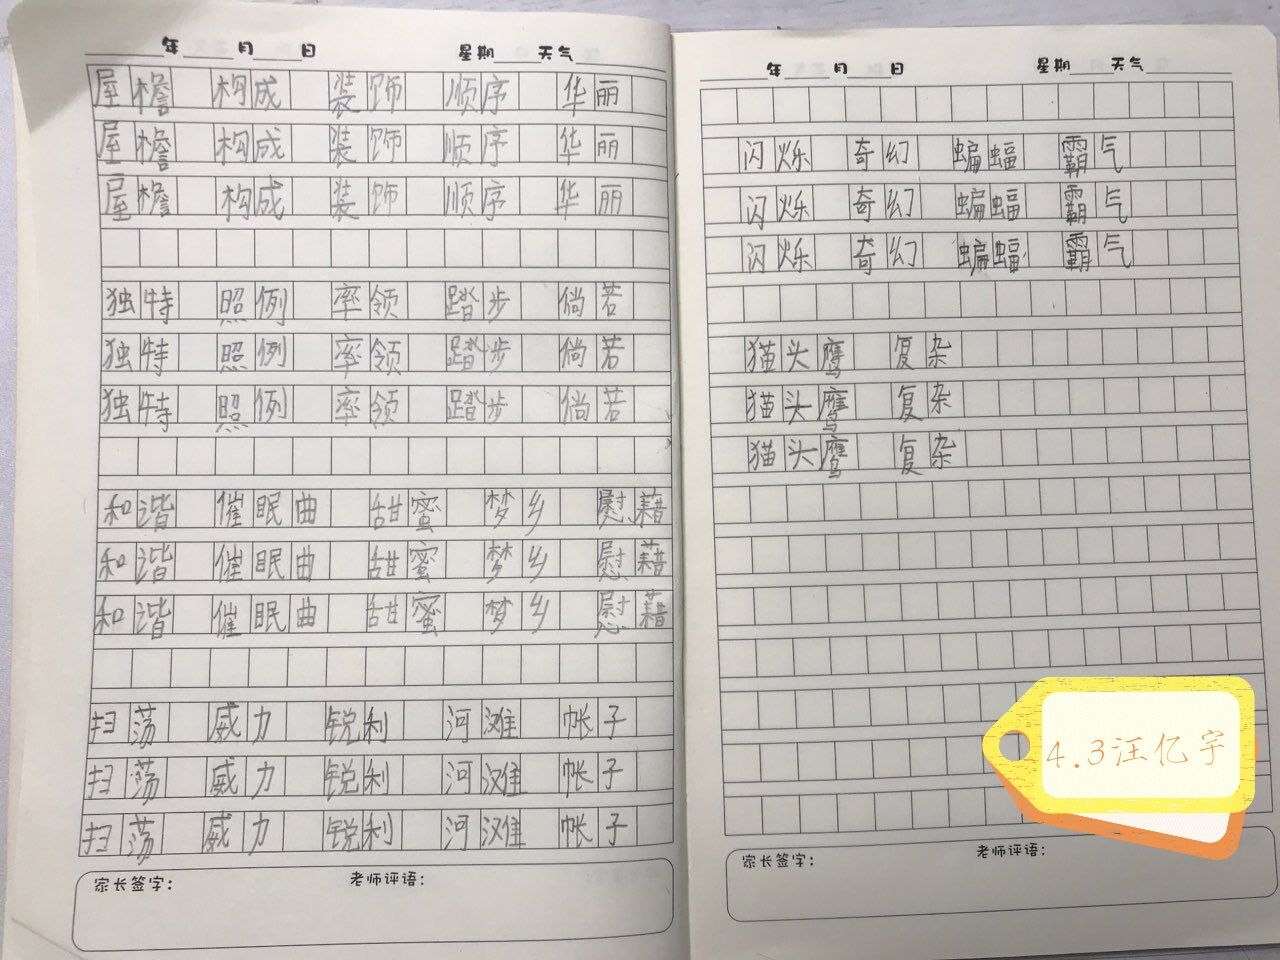 年 月 日 星期 天气
屋檐 构成 装饰 顺序 华丽
屋檐 构成 装饰 顺序 华丽
屋檐 构成 装饰 顺序 华丽
独特 照例 率领 踏步 倘若
独特 照例 率领 踏步 倘若
独特 照例 率领 踏步 倘若
和谐 催眠曲 甜蜜 梦乡 慰藉
和谐 催眠曲 甜蜜 梦乡 慰藉
和谐 催眠曲 甜蜜 梦乡 慰藉
扫荡 威力 锐利 河滩 帐子
扫荡 威力 锐利 河滩 帐子
扫荡 威力 锐利 河滩 帐子
家长签字： 老师评语：
年 月 日 星期 天气
闪烁 奇幻 蝙蝠 霸气
闪烁 奇幻 蝙蝠 霸气
闪烁 奇幻 蝙蝠 霸气
猫头鹰 复杂
猫头鹰 复杂
猫头鹰 复杂
4.3汪亿宇
家长签字： 老师评语：